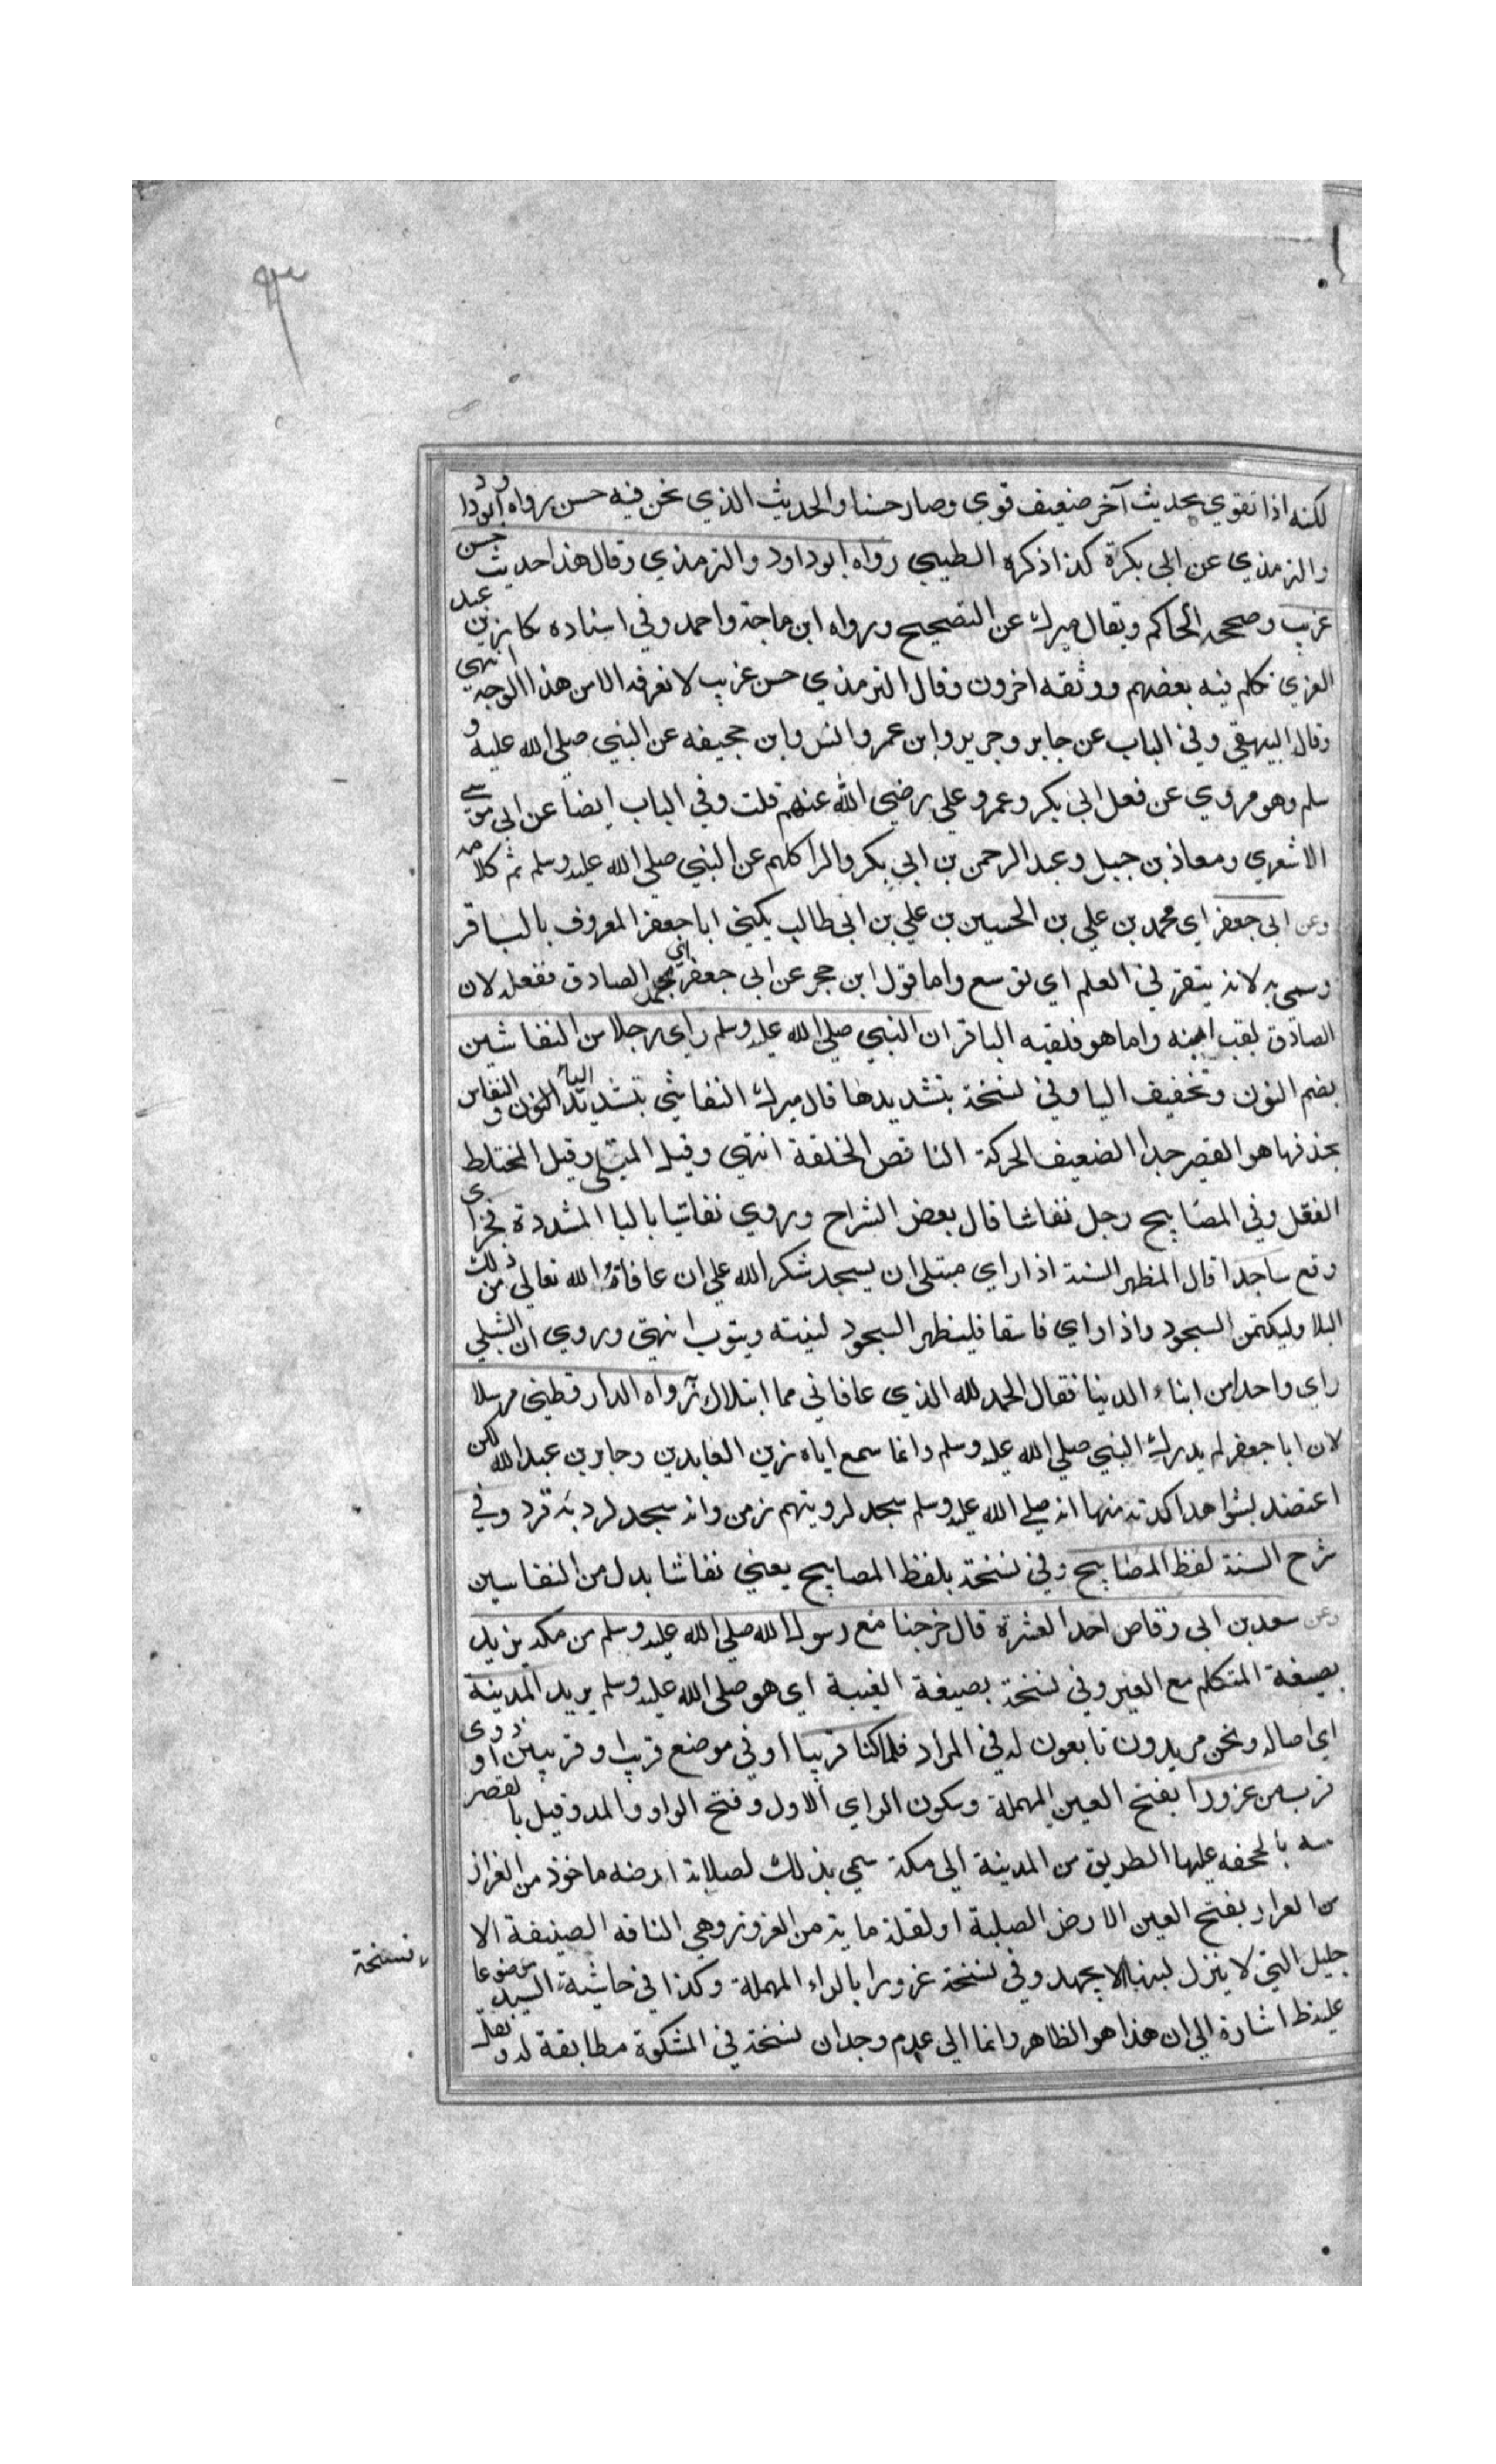 ٩٣
لكنه اذا تقوي بحديث آخر ضعيف قوي وصار حسنا والحديث الذي نحن فيه حسن رواه ابو داود
والترمذي عن ابي بكرة كذا ذكره الطيبي رواه ابو داود والترمذي وقال هذا حديث حسن
غريب وصححه الحاكم ويقال ميرك عن التصحيح ورواه ابن ماجة واحمد وفي اسناده بكار بن عبد
العزيز تكلم فيه بعضهم ووثقه اخرون وقال الترمذي حسن غريب لا نعرفه الا من هذا الوجه انتهي
وقال البيهقي وفي الباب عن جابر وجرير وابن عمر وانس وابن جحيفه عن النبي صلي الله عليه و
سلم وهو مروي عن فعل ابي بكر وعمر وعلي رضي الله عنهم قلت وفي الباب ايضا عن ابي موسي
الاشعري ومعاذ بن جبل وعبد الرحمن بن ابي بكر والبرا كلهم عن النبي صلي الله عليه وسلم تم كلامه
وعن ابي جعفر اي محمد بن علي بن الحسين بن علي بن ابي طالب يكني ابا جعفر المعروف بالباقر
وسمي به لانه يتبقر في العلم اي توسع واما قول ابن حجر عن ابي جعفر اي محمد الصادق فغفله لان
الصادق لقب ابنه واما هو فلقبه الباقر ان النبي صلي الله عليه وسلم راي رجلا من النغاشين
بضم النون وتخفيف اليا وفي نسخة بتشديدها قال ميرك النغاشي بتشديد الياء والنغاش
بحذفها هو القصير جدا الضعيف الحركة الناقص الخلقة انتهي وقيل المبتلي وقيل المختلط
العقل وفي المصابيح رجل نغاشا قال بعض الشراح وروي نغاشيا باليا المشددة فخر اي
وقع ساجدا قال المظهر السنة اذا راي مبتلي ان يسجد شكر الله علي ان عافاه الله تعالي من ذلك
البلا وليكتمن السجود واذا راي فاسقا فليظهر السجود لينته ويتوب انتهي وروي ان الشبلي
راي واحدا من ابناء الدنيا فقال الحمد لله الذي عافاني مما ابتلاك رواه الدارقطني مرسلا
لان ابا جعفر لم يدرك النبي صلي الله عليه وسلم وانما سمع اباه زين العابدين وجابر بن عبد الله لكن
اعتضد بشواهد اكدته منها انه صلي الله عليه وسلم سجد لرويتهم زمن وانه سجد لروية قرد وفي
شرح السنة لفظ المصابيح وفي نسخة بلفظ المصابيح يعني نغاشا بدل من النغاسين
وعن سعد بن ابي وقاص احد العشرة قال خرجنا مع رسول الله صلي الله عليه وسلم من مكة نريد
بصيغة المتكلم مع الغير وفي نسخة بصيغة الغيبة اي هو صلي الله عليه وسلم يريد المدينة
اي اصالة ونحن مريدون تابعون له في المراد فلما كنا قريبا اي في موضع قريب او قريبين او ذوي
قرب من عزوزا بفتح العين المهملة وسكون الزاي الاول وفتح الواو والمد وقيل بالقصر
بالجحفه عليها الطريق من المدينة الي مكة سمي بذلك لصلابة ارضه ماخوذ من العزاز
من العزاز بفتح العين الارض الصلبة او لقلة مايه من العزوز وهي الناقه الضيقة الا
حليل التي لا ينزل لبنها الا بجهد وفي نسخة عزورا بالراء المهملة وكذا في حاشية السيد موضوعا
عليه ظ اشارة الي ان هذا هو الظاهر وانما الي عدم وجدان نسخة في المشكوة مطابقة له و
نسخة